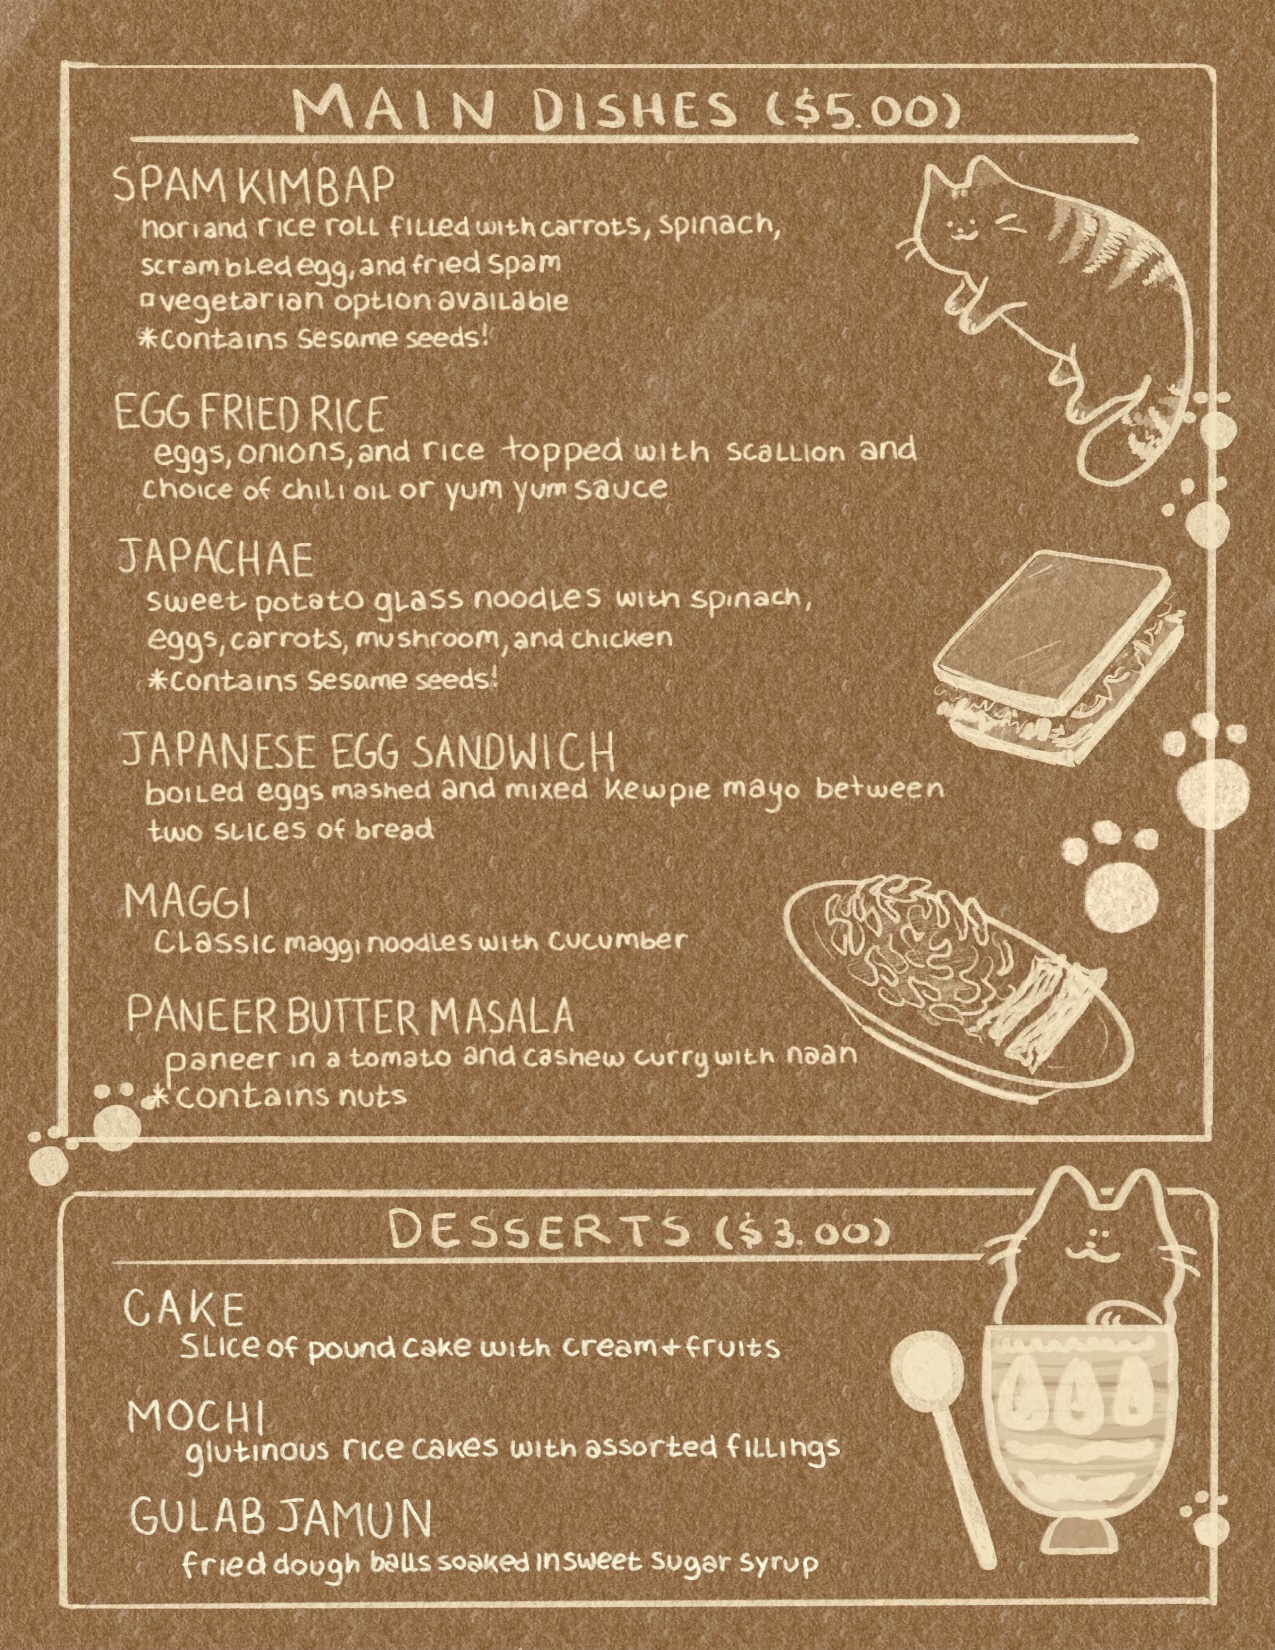 MAIN DISHES ($5.00)
SPAM KIMBAP
nori and rice roll filled with carrots, spinach,
scrambled egg, and fried spam
▫vegetarian option available
*contains sesame seeds!
EGG FRIED RICE
eggs, onions, and rice topped with scallion and
choice of chili oil or yum yum sauce
JAPACHAE
sweet potato glass noodles with spinach,
eggs, carrots, mushroom, and chicken
*contains sesame seeds!
JAPANESE EGG SANDWICH
boiled eggs mashed and mixed kewpie mayo between
two slices of bread
MAGGI
classic maggi noodles with cucumber
PANEER BUTTER MASALA
paneer in a tomato and cashew curry with naan
*contains nuts
DESSERTS ($3.00)
CAKE
slice of pound cake with cream + fruits
MOCHI
glutinous rice cakes with assorted fillings
GULAB JAMUN
fried dough balls soaked in sweet sugar syrup